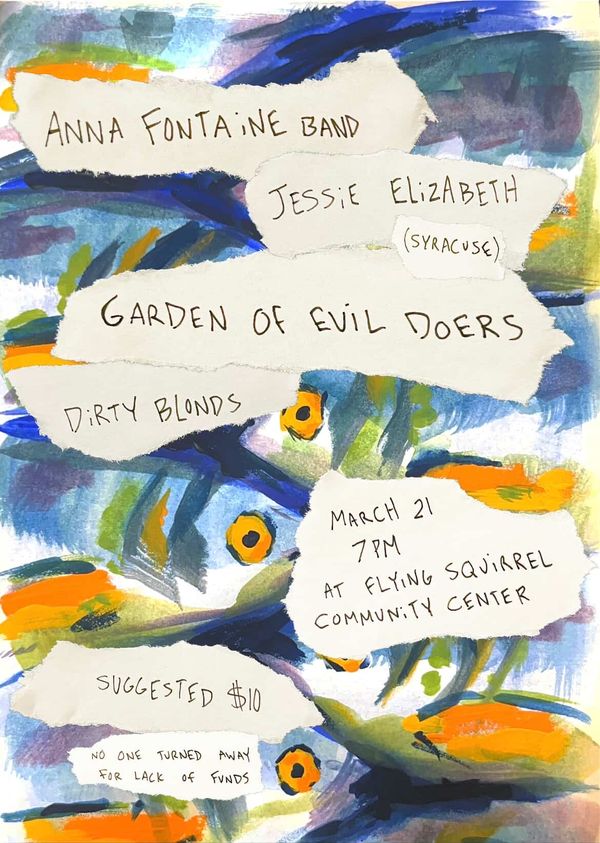 ANNA FONTAiNE BAND
JESSiE ELiZABETH
(SYRACUSE)
GARDEN OF EViL DOERS
DiRTY BLONDS
MARCH 21
7 PM
AT FLYiNG SQUiRREL
COMMUNiTY CENTER
SUGGESTED $10
NO ONE TURNED AWAY
FOR LACK OF FUNDS